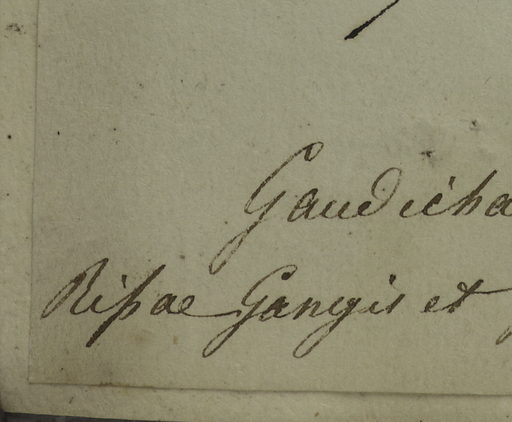 Gaudicha
Ripae Gangis et